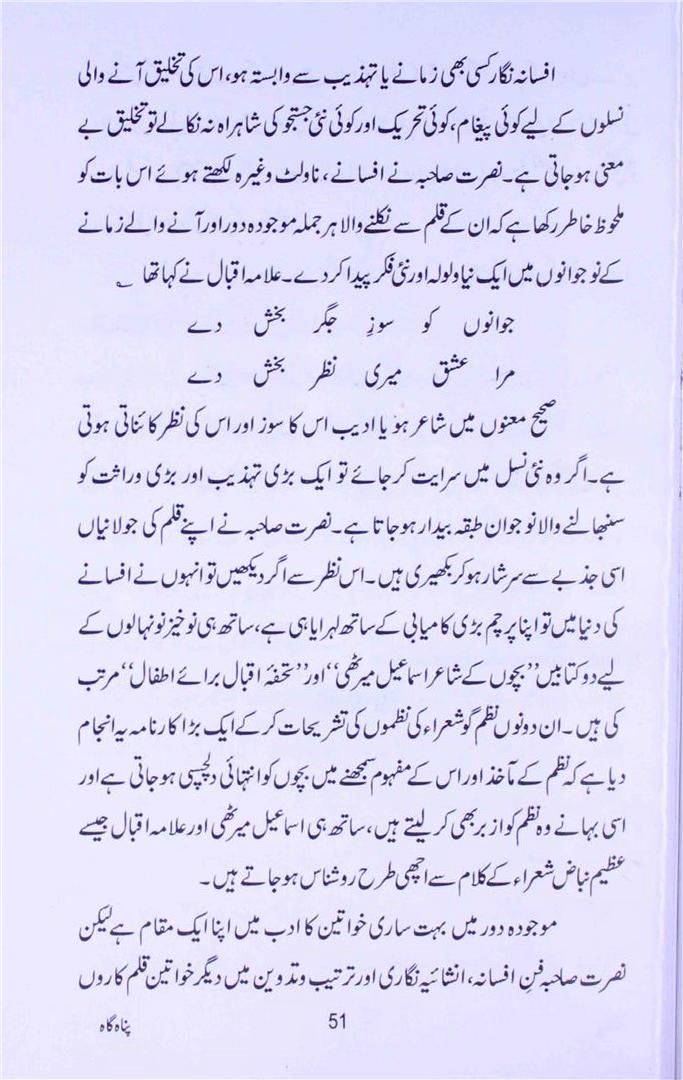 افسانہ نگار کسی بھی زمانے یا تہذیب سے وابستہ ہو، اس کی تخلیق آنے والی
نسلوں کے لیے کوئی پیغام، کوئی تحریک اور کوئی نئی جستجو کی شاہراہ نہ نکالے تو تخلیق بے
معنی ہو جاتی ہے۔ نصرت صاحبہ نے افسانے، ناولٹ وغیرہ لکھتے ہوئے اس بات کو
ملحوظ خاطر رکھا ہے کہ ان کے قلم سے نکلنے والا ہر جملہ موجودہ دور اور آنے والے زمانے
کے نو جوانوں میں ایک نیا ولولہ اور نئی فکر پیدا کر دے۔ علامہ اقبال نے کہا تھا ؎
جوانوں کو سوزِ جگر بخش دے
مرا عشق میری نظر بخش دے
صحیح معنوں میں شاعر ہو یا ادیب اس کا سوز اور اس کی نظر کائناتی ہوتی
ہے۔ اگر وہ نئی نسل میں سرایت کر جائے تو ایک بڑی تہذیب اور بڑی وراثت کو
سنبھالنے والا نوجوان طبقہ بیدار ہو جاتا ہے۔ نصرت صاحبہ نے اپنے قلم کی جولانیاں
اسی جذبے سے سرشار ہو کر بکھیری ہیں۔ اس نظر سے اگر دیکھیں تو انہوں نے افسانے
کی دنیا میں تو اپنا پرچم بڑی کامیابی کے ساتھ لہرایا ہی ہے، ساتھ ہی نوخیز نونہالوں کے
لیے دو کتابیں ”بچوں کے شاعر اسماعیل میرٹھی“ اور ”تحفۂ اقبال برائے اطفال“ مرتب
کی ہیں۔ ان دونوں نظم گو شعراء کی نظموں کی تشریحات کر کے ایک بڑا کارنامہ یہ انجام
دیا ہے کہ نظم کے مآخذ اور اس کے مفہوم سمجھنے میں بچوں کو انتہائی دلچسپی ہو جاتی ہے اور
اسی بہانے وہ نظم کو از بر بھی کر لیتے ہیں، ساتھ ہی اسماعیل میرٹھی اور علامہ اقبال جیسے
عظیم نباض شعراء کے کلام سے اچھی طرح روشناس ہو جاتے ہیں۔
موجودہ دور میں بہت ساری خواتین کا ادب میں اپنا ایک مقام ہے لیکن
نصرت صاحبہ فنِ افسانہ، انشائیہ نگاری اور ترتیب و تدوین میں دیگر خواتین قلم کاروں
پناہ گاہ 51